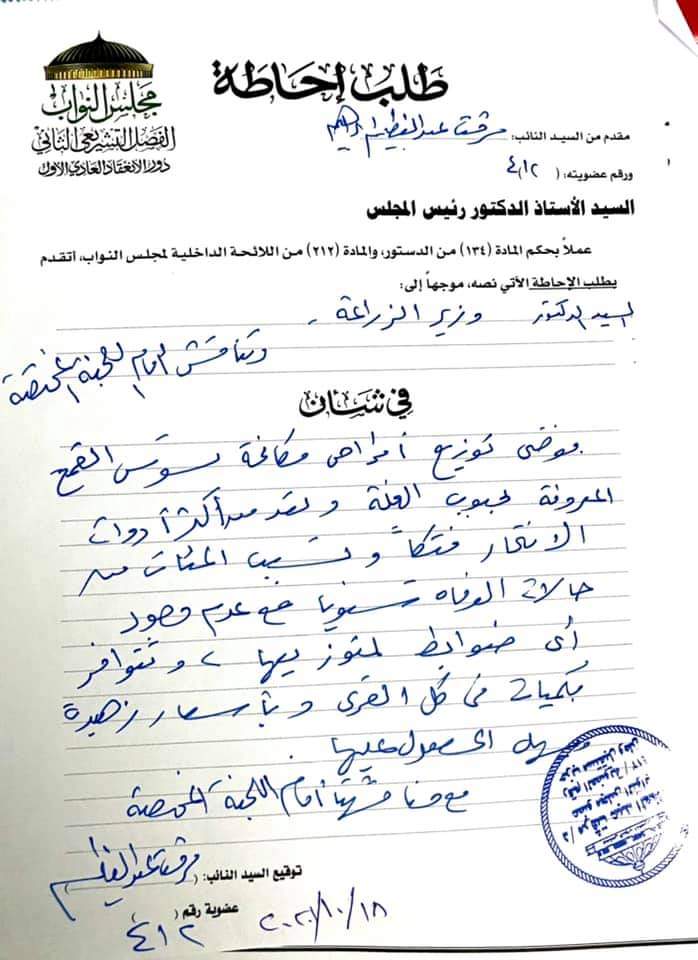 مجلس النواب
الفصل التشريعي الثاني
دور الانعقاد العادي الأول
طلب إحاطة
مقدم من السيد النائب: مرفت عبد العظيم
ورقم عضويته: (٤١٢
السيد الأستاذ الدكتور رئيس المجلس
عملاً بحكم المادة (١٣٤) من الدستور، والمادة (٢١٢) من اللائحة الداخلية لمجلس النواب، أتقدم
بطلب الإحاطة الآتي نصه، موجهاً إلى:
السيد الدكتور وزير الزراعة
وتناقش أمام اللجنة المختصة
في شأن
فوضى توزيع أقراص مكافحة سوس القمح
المعروفة بحبوب الغلة وتعد من أكثر أدوات
الانتحار فتكاً وتسبب المئات من
حالات الوفاه سنويا مع عدم وجود
أى ضوابط لتوزيعها، وتتوافر
بكميات فى كل القرى وبأسعار زهيدة
الحصول عليها.
مع مناقشتها أمام اللجنة المختصة
توقيع السيد النائب: (مرفت عبد العظيم
عضوية رقم (٤١٢
٢٠٢١/١٠/١٨